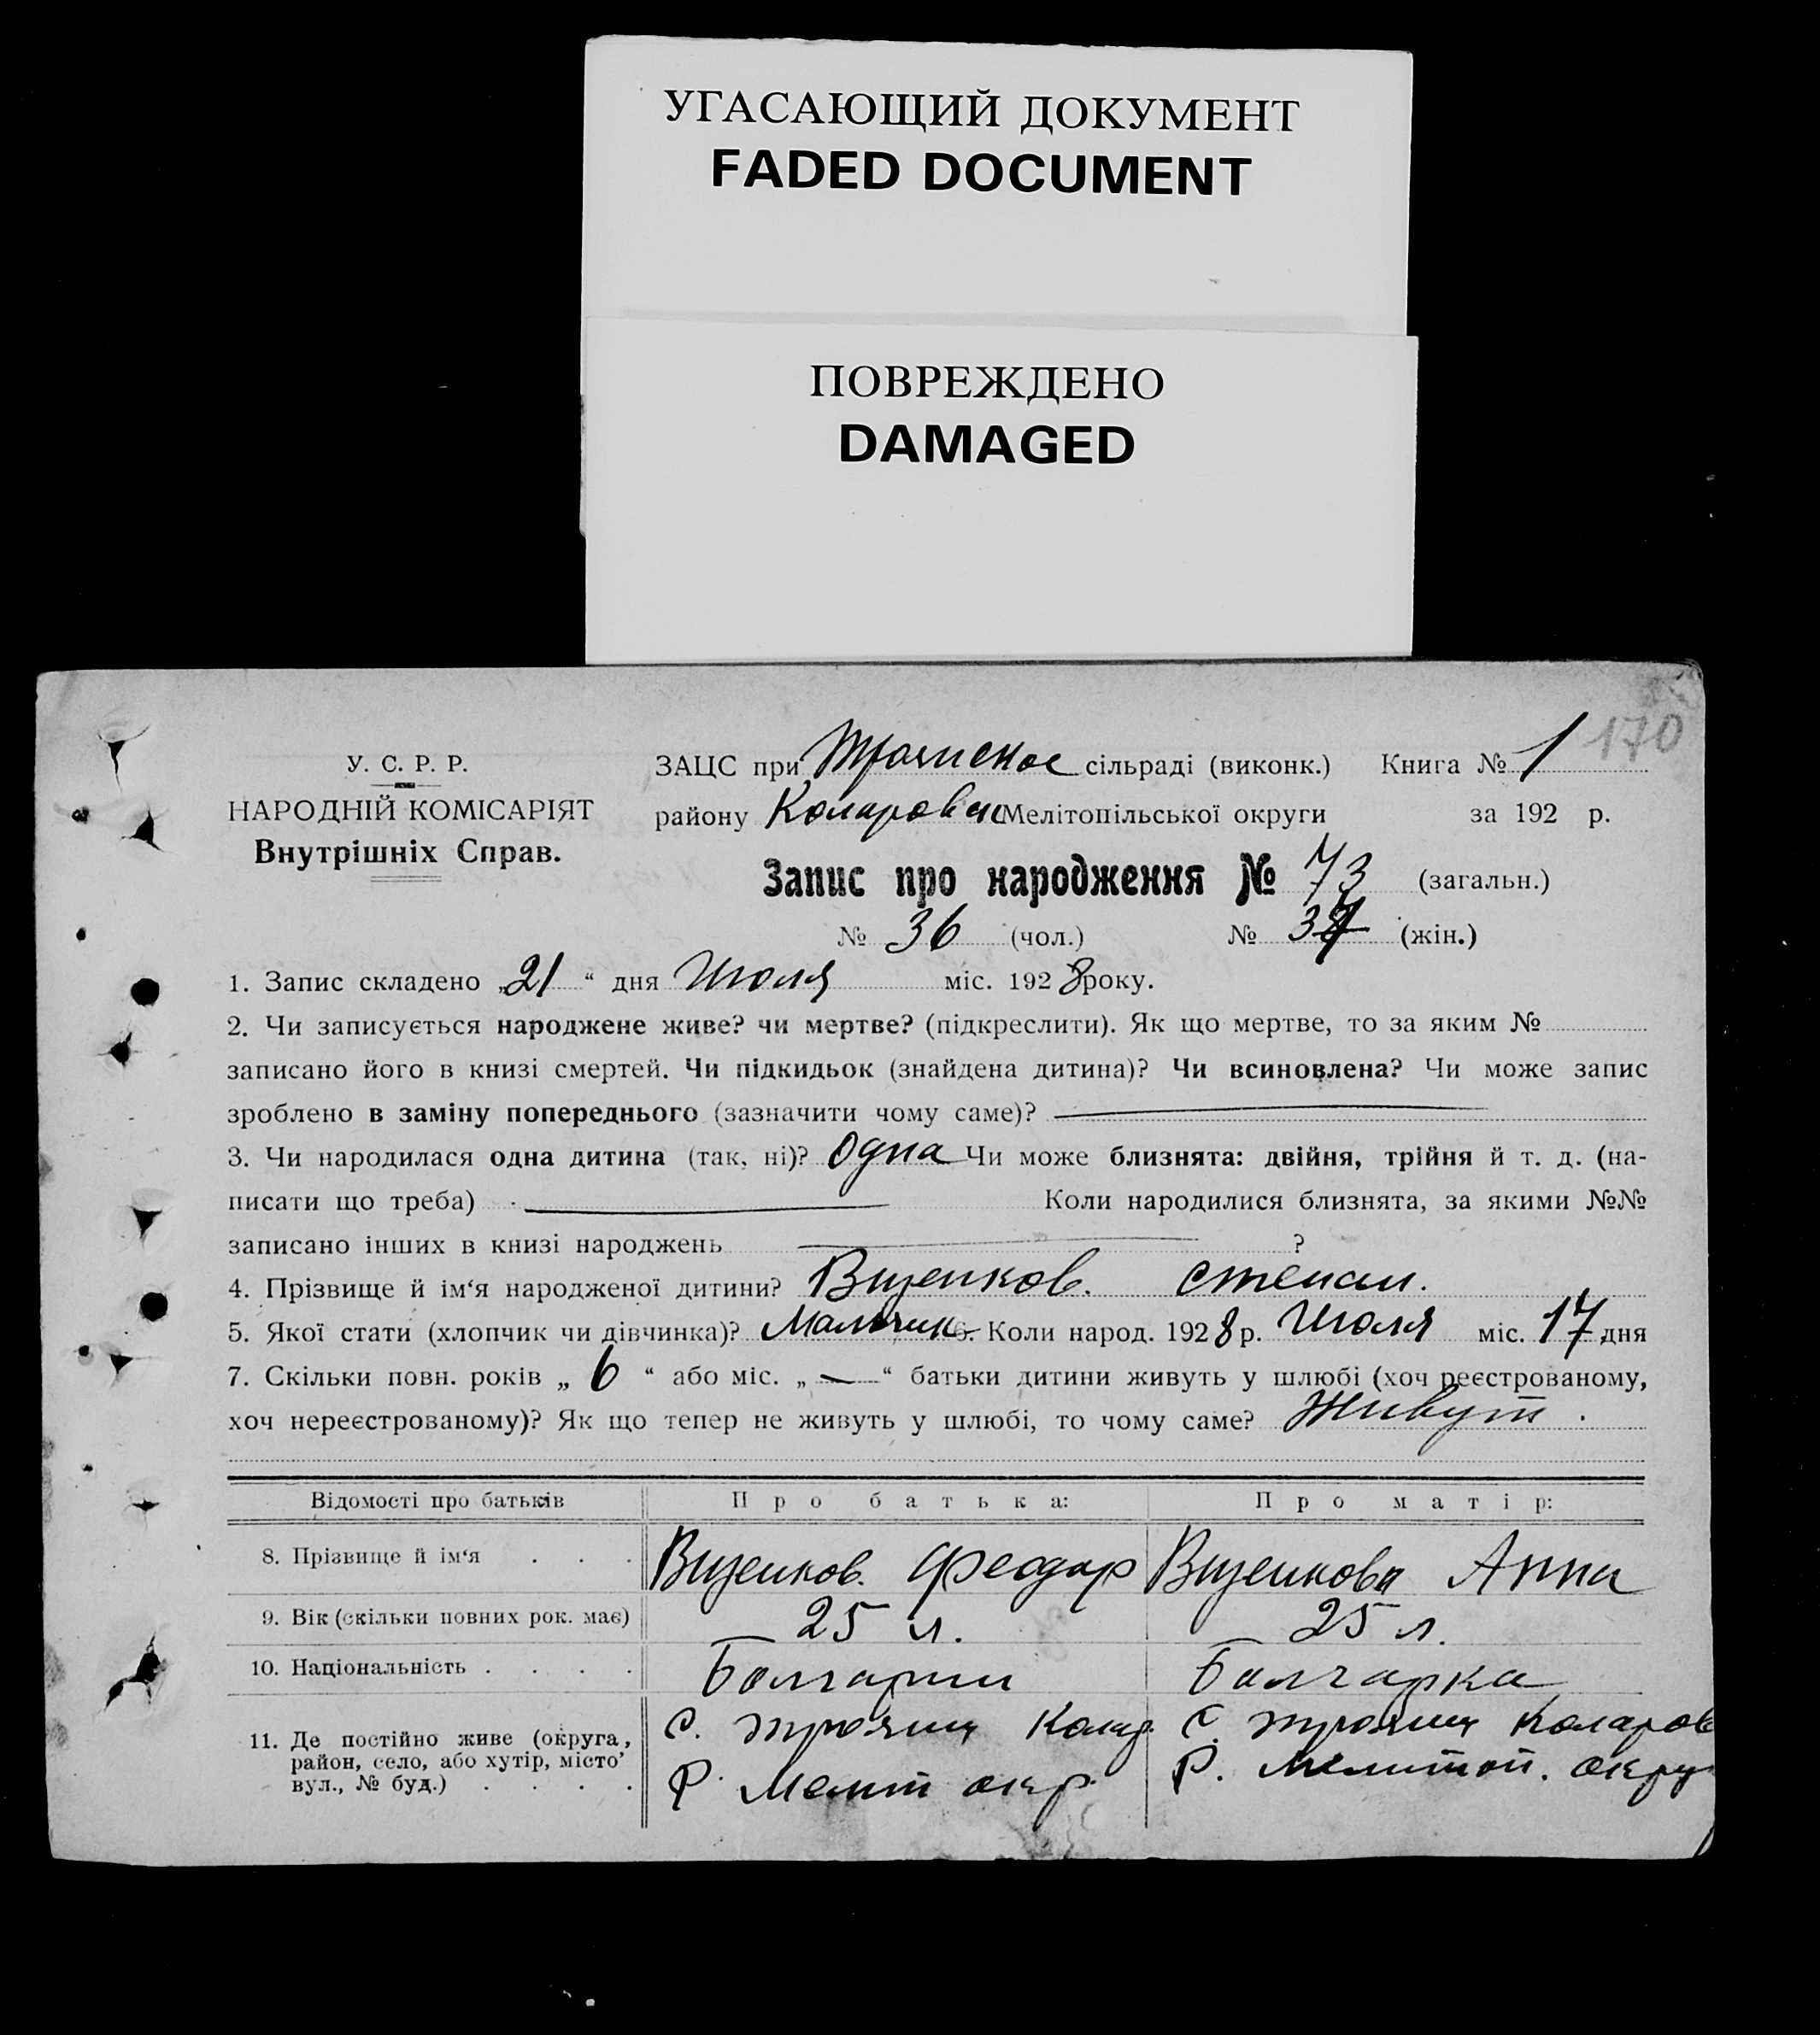 УГАСАЮЩИЙ ДОКУМЕНТ
FADED DOCUMENT
ПОВРЕЖДЕНО
DAMAGED
170
У. С. Р. Р.
НАРОДНІЙ КОМІСАРІЯТ
Внутрішніх Справ.
ЗАЦС при Троянское сільраді (виконк.) Книга № 1
району Коларовск Мелітопільської округи за 192 р.
Запис про народження № 73 (загальн.)
№ 36 (чол.) № 37 (жін.)
1. Запис складено „21“ дня Июля міс. 1928 року.
2. Чи записується народжене живе? чи мертве? (підкреслити). Як що мертве, то за яким №
записано його в книзі смертей. Чи підкидьок (знайдена дитина)? Чи всиновлена? Чи може запис
зроблено в заміну попереднього (зазначити чому саме)? —
3. Чи народилася одна дитина (так, ні)? Одна Чи може близнята: двійня, трійня й т. д. (на-
писати що треба) — Коли народилися близнята, за якими №№
записано інших в книзі народжень — ?
4. Прізвище й ім‘я народженої дитини? Визенков. Степан.
5. Якої стати (хлопчик чи дівчинка)? Мальчик 6. Коли народ. 1928 р. Июля міс. 17 дня
7. Скільки повн. років „ 6 “ або міс. „ — “ батьки дитини живуть у шлюбі (хоч реєстрованому,
хоч нереєстрованому)? Як що тепер не живуть у шлюбі, то чому саме? Живут.
Відомості про батьків Про батька: Про матір:
8. Прізвище й ім‘я . . . Визенков. Феодор Визенкова Анна
9. Вік (скільки повних рок. має) 25 л. 25 л.
10. Національність . . . . Болгарин Болгарка
11. Де постійно живе (округа, С. Троянц Колар. С. Троянц Коларов
район, село, або хутір, місто’
вул., № буд.) . . . . Р. Мелит окр. Р. Мелитоп. окру